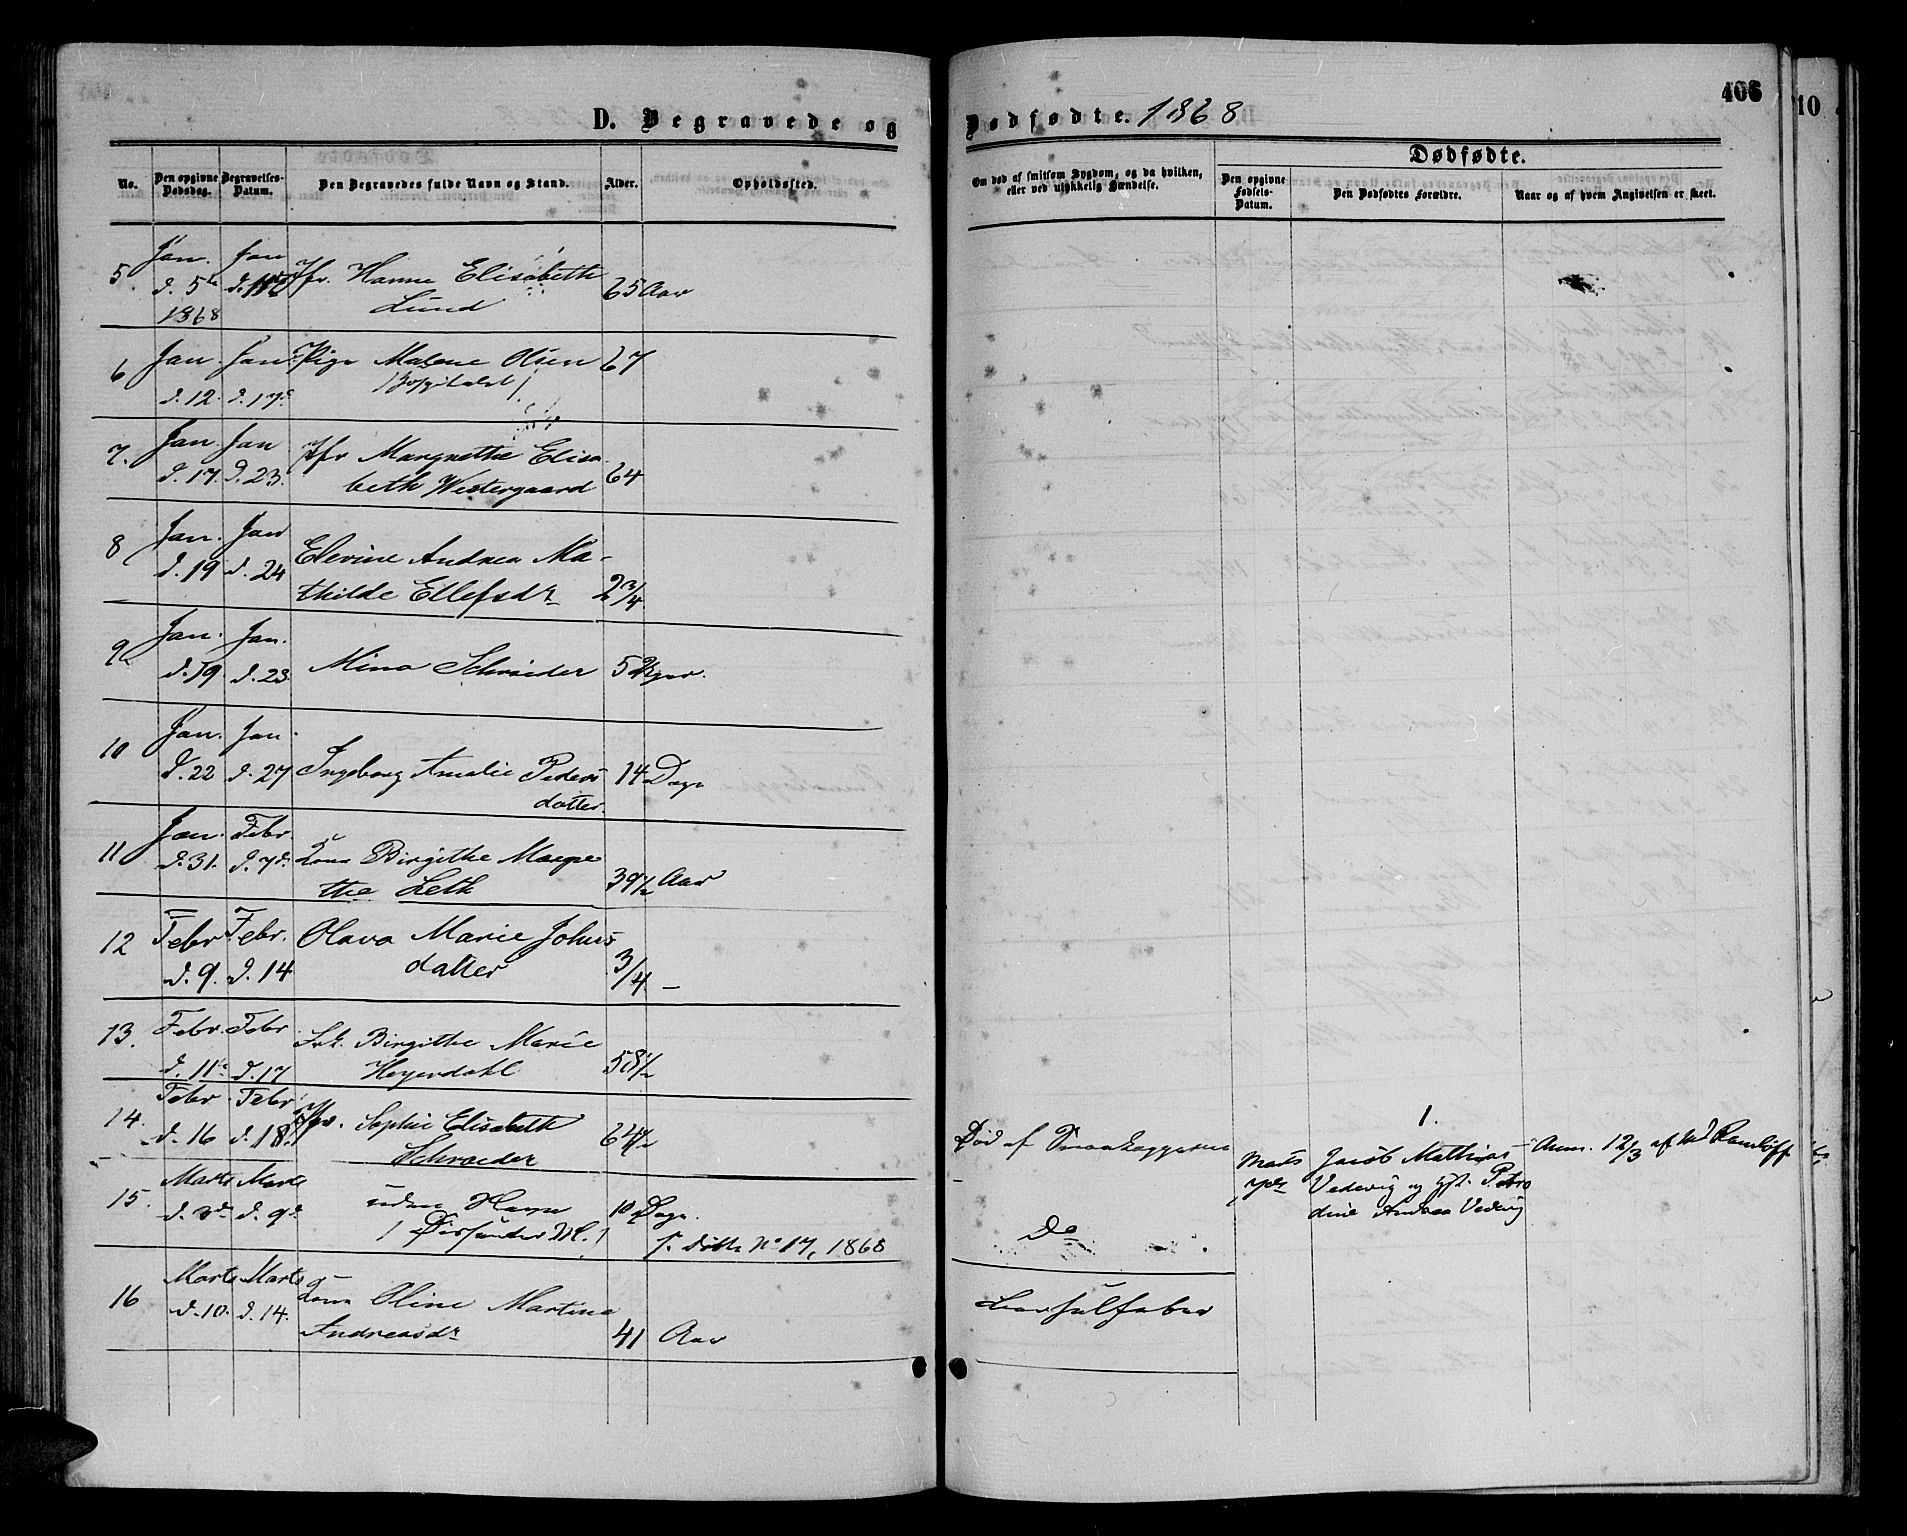 D. Begravede og
No.
Den opgivne Dødsdag.
Begravelses-Datum.
Den Begravedes fulde Navn og Stand.
Alder.
Opholdssted.
5.
Jan. d. 5te 1868
Jan d. 11te
Jfr. Hanne Elisabeth
Lund
65 Aar
6
Jan d. 12.
Jan d. 17de
Pige Malene Olsen
/Hospitalet/
67
7.
Jan. d. 17.
Jan d. 23.
Jfr Margrethe Elisa-
beth Westergaard
64
8
Jan. d. 19
Jan d. 24
Elevine Andrea Ma-
thilde Ellefsdr
2 3/4
9.
Jan. d. 19.
Jan. d. 23.
Mina Schrøder
5 Uger.
10
Jan. d. 22
Jan. d. 27
Ingeborg Amalie Peders
datter.
14 Dage
11
Jan. d. 31.
Febr. d. 7de
Kone Birgithe Margre
the Leth
39 1/2 Aar
12
Febr d. 9.
Febr. d. 14
Olava Marie Johns
datter
3/4 —
13.
Febr. d. 11te
Febr d. 17
Birgithe Marie
Heyerdahl
58 1/2
14.
Febr d. 16
Febr d. 18.
Jfr. Sophie Elisabeth
Schroeder
64 1/2
15.
Marts d. 3de
Marts d. 9de
uden Navn
10 Dage.
f. Døtte No 17, 1868
16
Marts d. 10.
Marts d. 14.
Kone Oline Martine
Andreasdr
41 Aar
Dødfødte. 1868
406
10
Om død af smitsom Sygdom, og da hvilken,
eller ved ulykkelig Hændelse.
Dødfødte.
Den opgivne Fødsels-Datum.
Den Dødfødtes Forældre.
Naar og af hvem Angivelsen er skeet.
1.
Død af
Marts
Jacob Mathias
Vedevig og Petro
dine Andrea Vedevig
Anm. 12/3 af
Do
Barselfeber